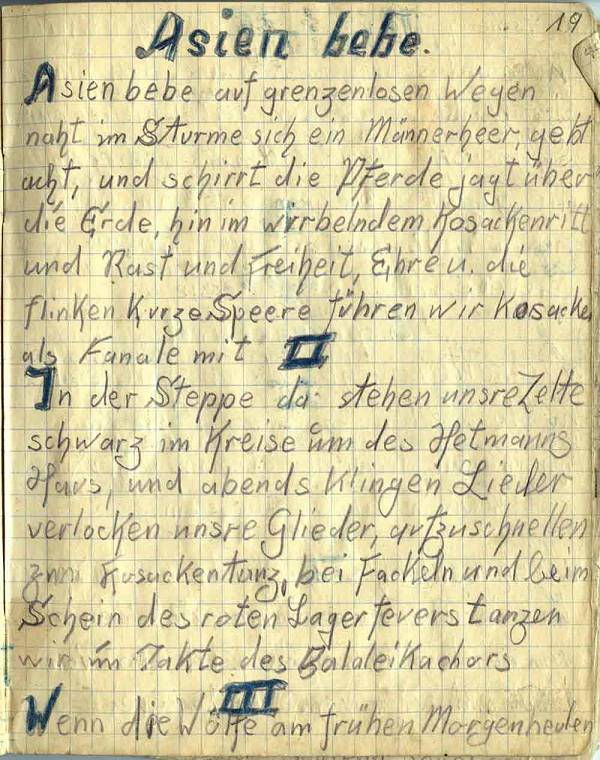 19
Asien bebe.
Asien bebe auf grenzenlosen Wegen
naht im Sturme sich ein Männerheer, gebt
acht, und schirrt die Pferde jagt über
die Erde, hin im wirbelndem Kosackenritt
und Rast und Freiheit, Ehre u. die
flinken Kurze Speere führen wir Kosacken
als Fanale mit II
In der Steppe da stehen unsre Zelte
schwarz im Kreise um des Hetmanns
Haus, und abends Klingen Lieder
verlocken unsre Glieder, aufzuschnellen
zum Kosackentanz, bei Fackeln und beim
Schein des roten Lagerfeuers tanzen
wir im Takte des Balaleikachors
III
Wenn die Wölfe am frühen Morgen heulen